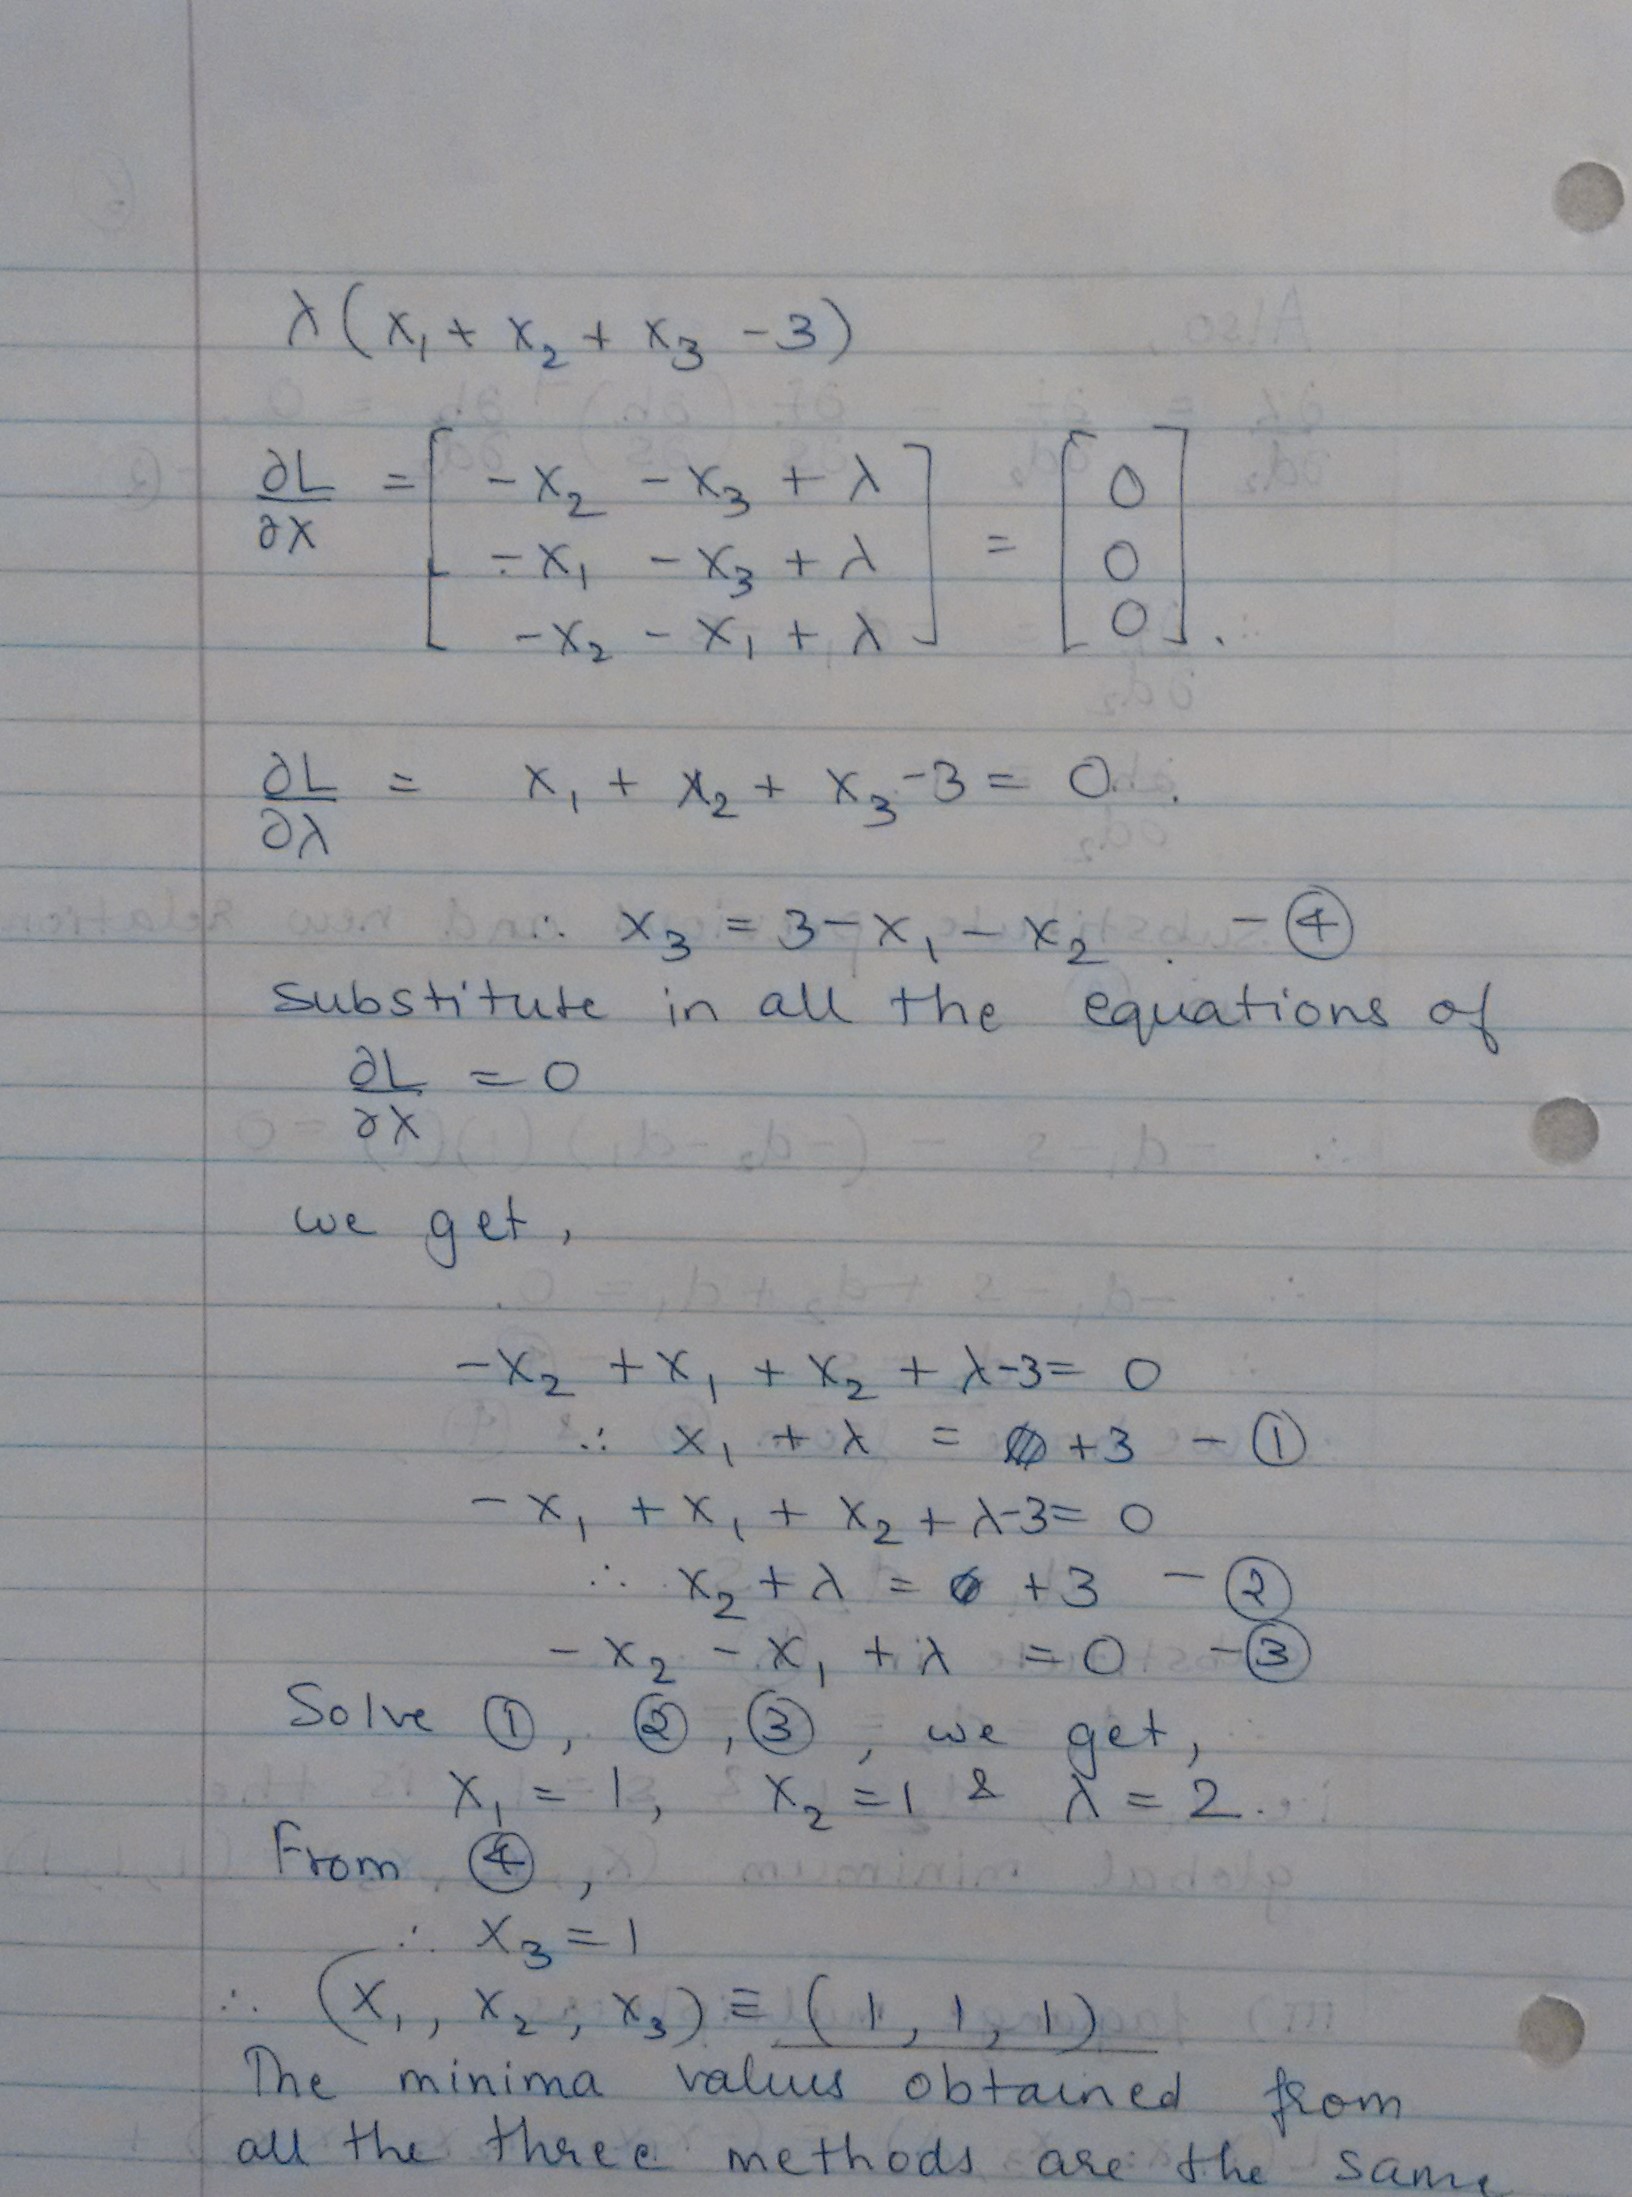 λ(x₁ + x₂ + x₃ - 3)
∂L/∂x = [ -x₂ - x₃ + λ ] = [ 0 ]
[ -x₁ - x₃ + λ ] [ 0 ]
[ -x₂ - x₁ + λ ] [ 0 ].
∂L/∂λ = x₁ + x₂ + x₃ - 3 = 0.
∴ x₃ = 3 - x₁ - x₂. - ④
substitute in all the equations of
∂L/∂x = 0
we get,
-x₂ + x₁ + x₂ + λ - 3 = 0
∴ x₁ + λ = +3 - ①
-x₁ + x₁ + x₂ + λ - 3 = 0
∴ x₂ + λ = +3 - ②
-x₂ - x₁ + λ = 0 - ③
Solve ①, ②, ③, we get,
x₁ = 1, x₂ = 1 & λ = 2.
From ④,
∴ x₃ = 1
∴ (x₁, x₂, x₃) ≡ (1, 1, 1)
The minima values obtained from
all the three methods are the same